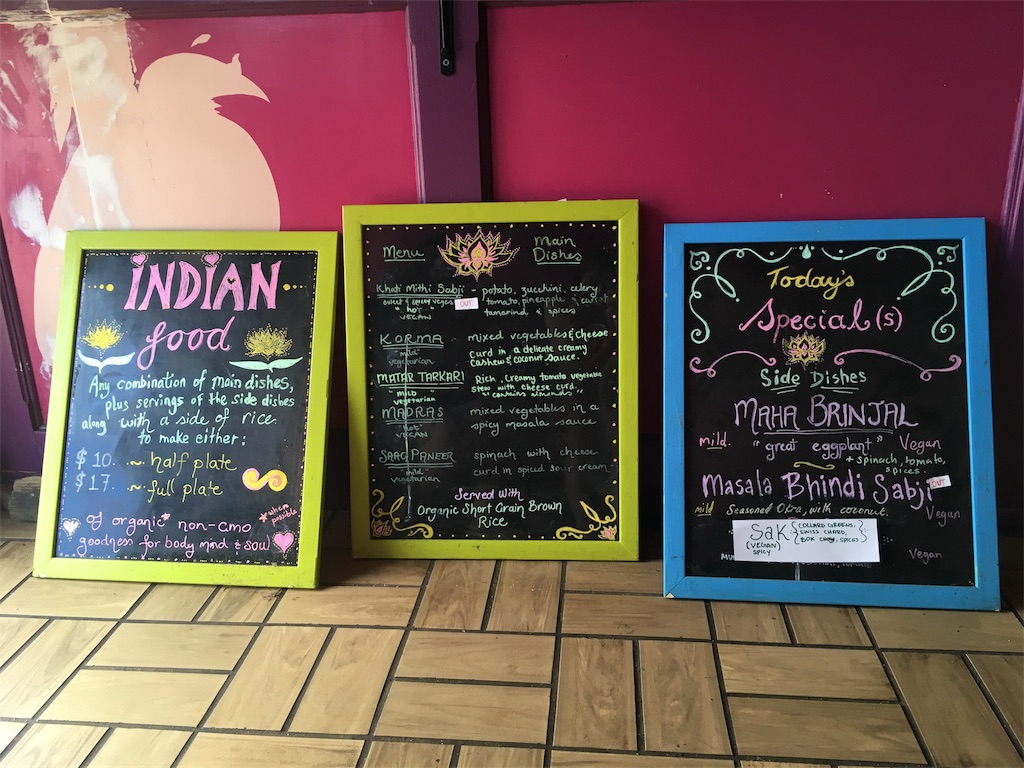 INDIAN
food
Any combination of main dishes,
plus servings of the side dishes
along with a side of rice
to make either:
$10...~ half plate
$17...~ full plate
* when possible
Of organic* non-GMO
goodness for body mind & soul
Menu
Main
Dishes
Khati Mithi Sabji - potato, zucchini, celery
sweet & spicy veges OUT tomato, pineapple & carrot
"hot" tamarind & spices
VEGAN
KORMA - mixed vegetables & cheese
"mild" curd in a delicate creamy
vegetarian cashew & coconut sauce.
MATAR TARKARI Rich, Creamy tomato vegetable
mild stew with cheese curd.
vegetarian "contains almonds"
MADRAS mixed vegetables in a
"hot" spicy masala sauce
VEGAN
SAAG PANEER spinach with cheese
mild curd in spiced sour cream
vegetarian
Served With
Organic Short Grain Brown
Rice
Today's
Special(s)
Side Dishes
MAHA BRINJAL
mild. "great eggplant" Vegan
+ spinach, tomato,
spices.
Masala Bhindi Sabji OUT
mild Seasonal Okra, with coconut. Vegan
Sak { COLLARD GREENS,
SWISS CHARD,
BOK CHOY, SPICES }
(VEGAN)
SPICY
Vegan